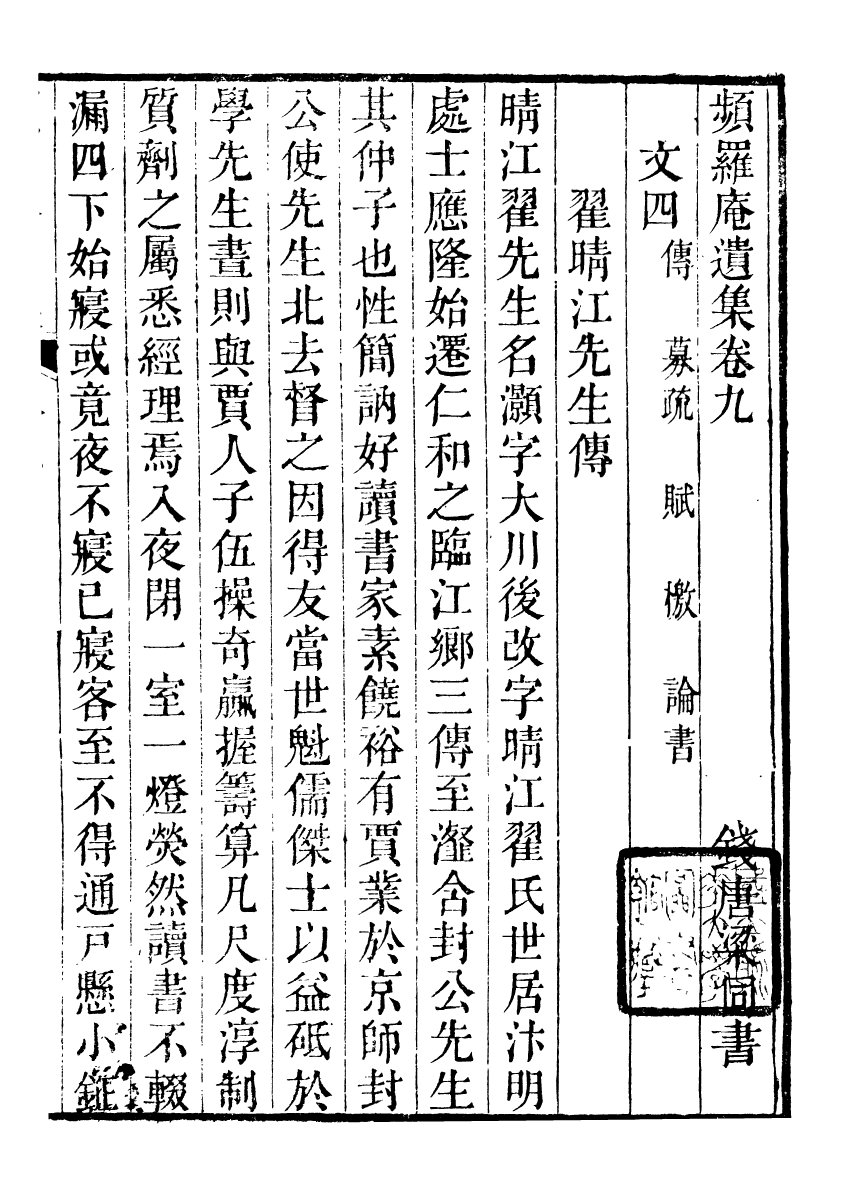 頻羅庵遺集卷九
錢唐梁同書
文四 傳 募疏 賦 檄 論書
翟晴江先生傳
晴江翟先生名灝字大川後改字晴江翟氏世居汴明
處士應隆始遷仁和之臨江鄉三傳至瀣含封公先生
其仲子也性簡訥好讀書家素饒裕有賈業於京師封
公使先生北去督之因得友當世魁儒傑士以益砥於
學先生晝則與賈人子伍操奇贏握籌算凡尺度淳制
質劑之屬悉經理焉入夜閉一室一燈熒然讀書不輟
漏四下始寢或竟夜不寢已寢客至不得通戸懸小鉦